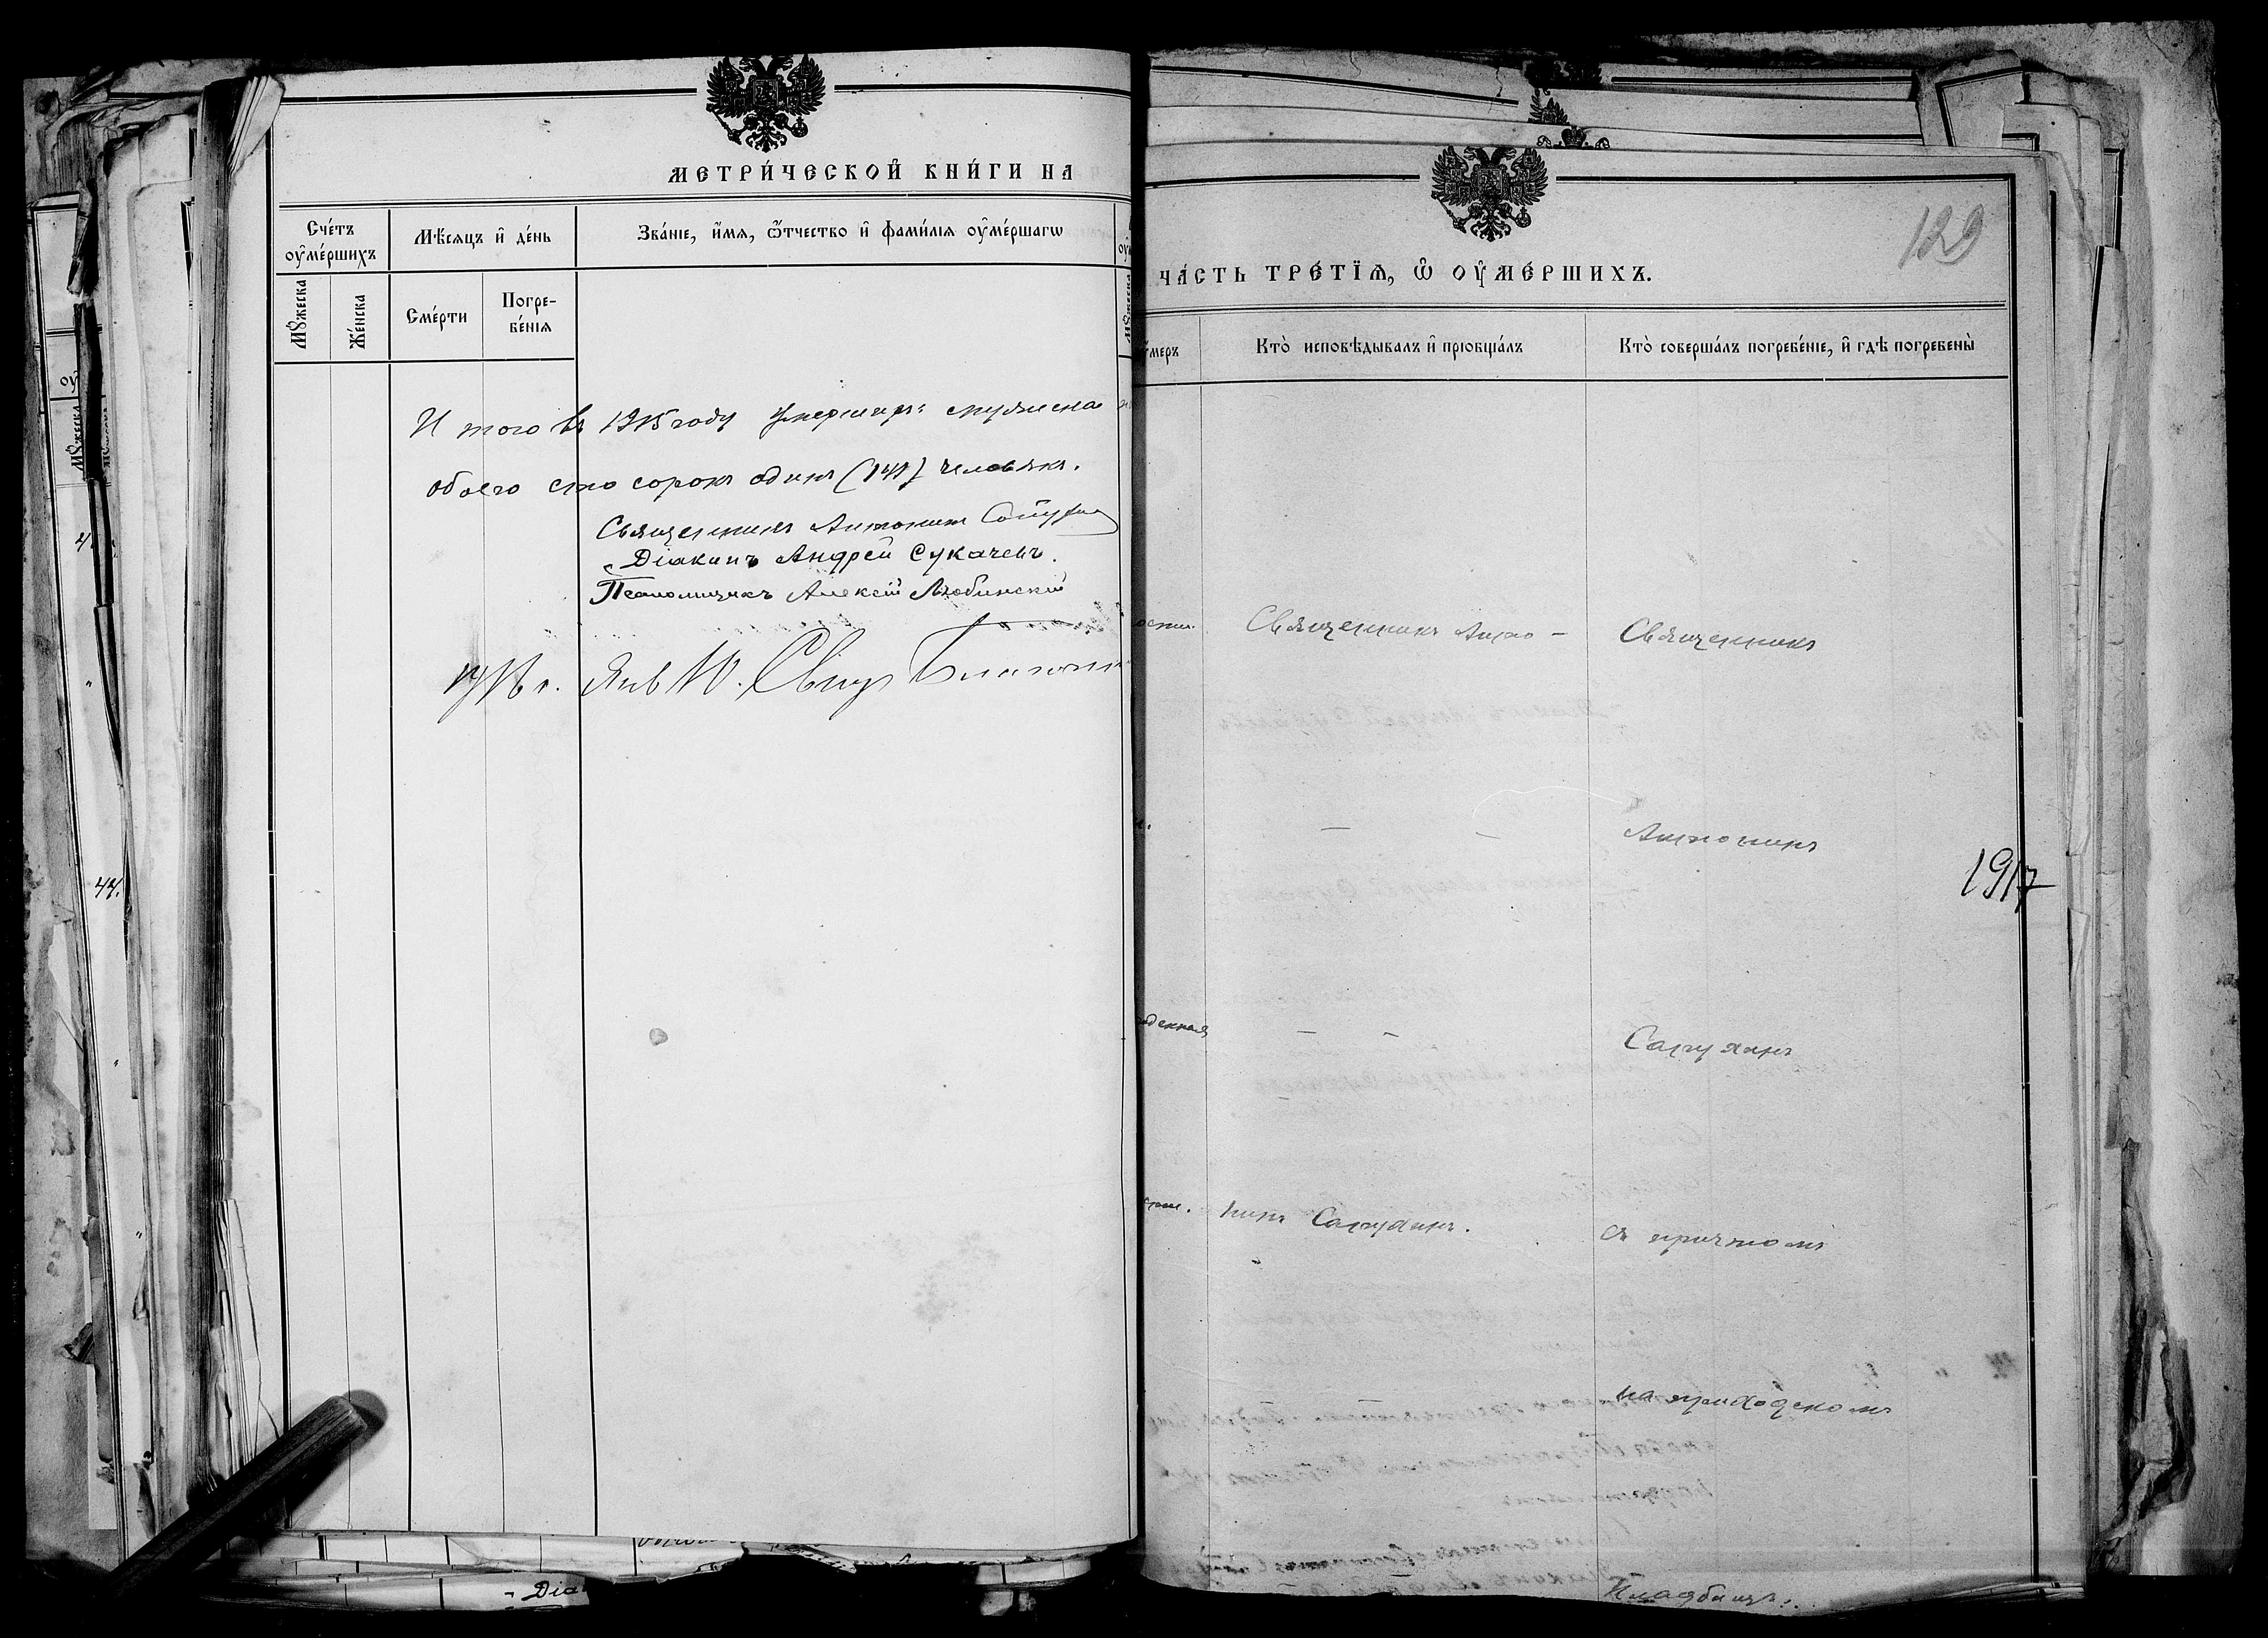 МЕТРИ́ЧЕСКОЙ КНИ́ГИ НА
Сче́тъ ᲂу҆ме́ршихъ
Мѣ́сяцъ и҆ де́нь
Зва́нїе, и҆́мя, ѻ҆́тчество и҆ фами́лїя ᲂу҆ме́ршагѡ
Мꙋ́жеска
Же́нска
Сме́рти
Погребе́нїя
И того въ 1915 году умерших: мужска
обоего сто сорокъ одинъ (141) человѣкъ.
Священникъ Антонинъ
Діаконъ Андрей Сукачевъ.
Псаломщикъ Алексій Любинскій
Янв 10. Свящ
129
ЧА́СТЬ ТРЕ́ТЇЯ, Ѡ҆ ОУ҆МЕ́РШИХЪ.
Кто̀ исповѣ́дывалъ и҆ прїобща́лъ
Кто̀ соверша́лъ погребе́нїе, и҆ гдѣ̀ погребены̀
Священникъ Анто-
Священникъ
Антонинъ
1917
нинъ
съ причтомъ
на приходскомъ
кладбищѣ.
44.
Діа